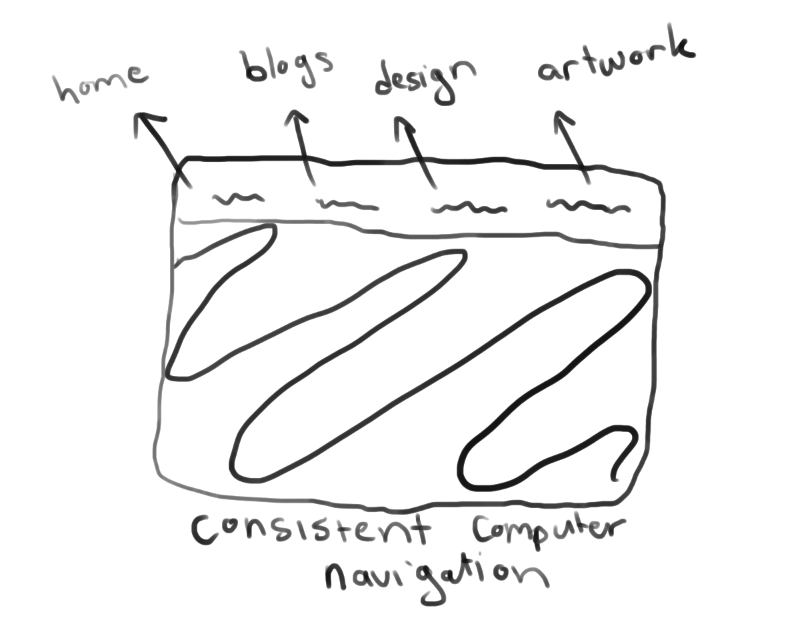 home blogs design artwork
consistent computer
navigation